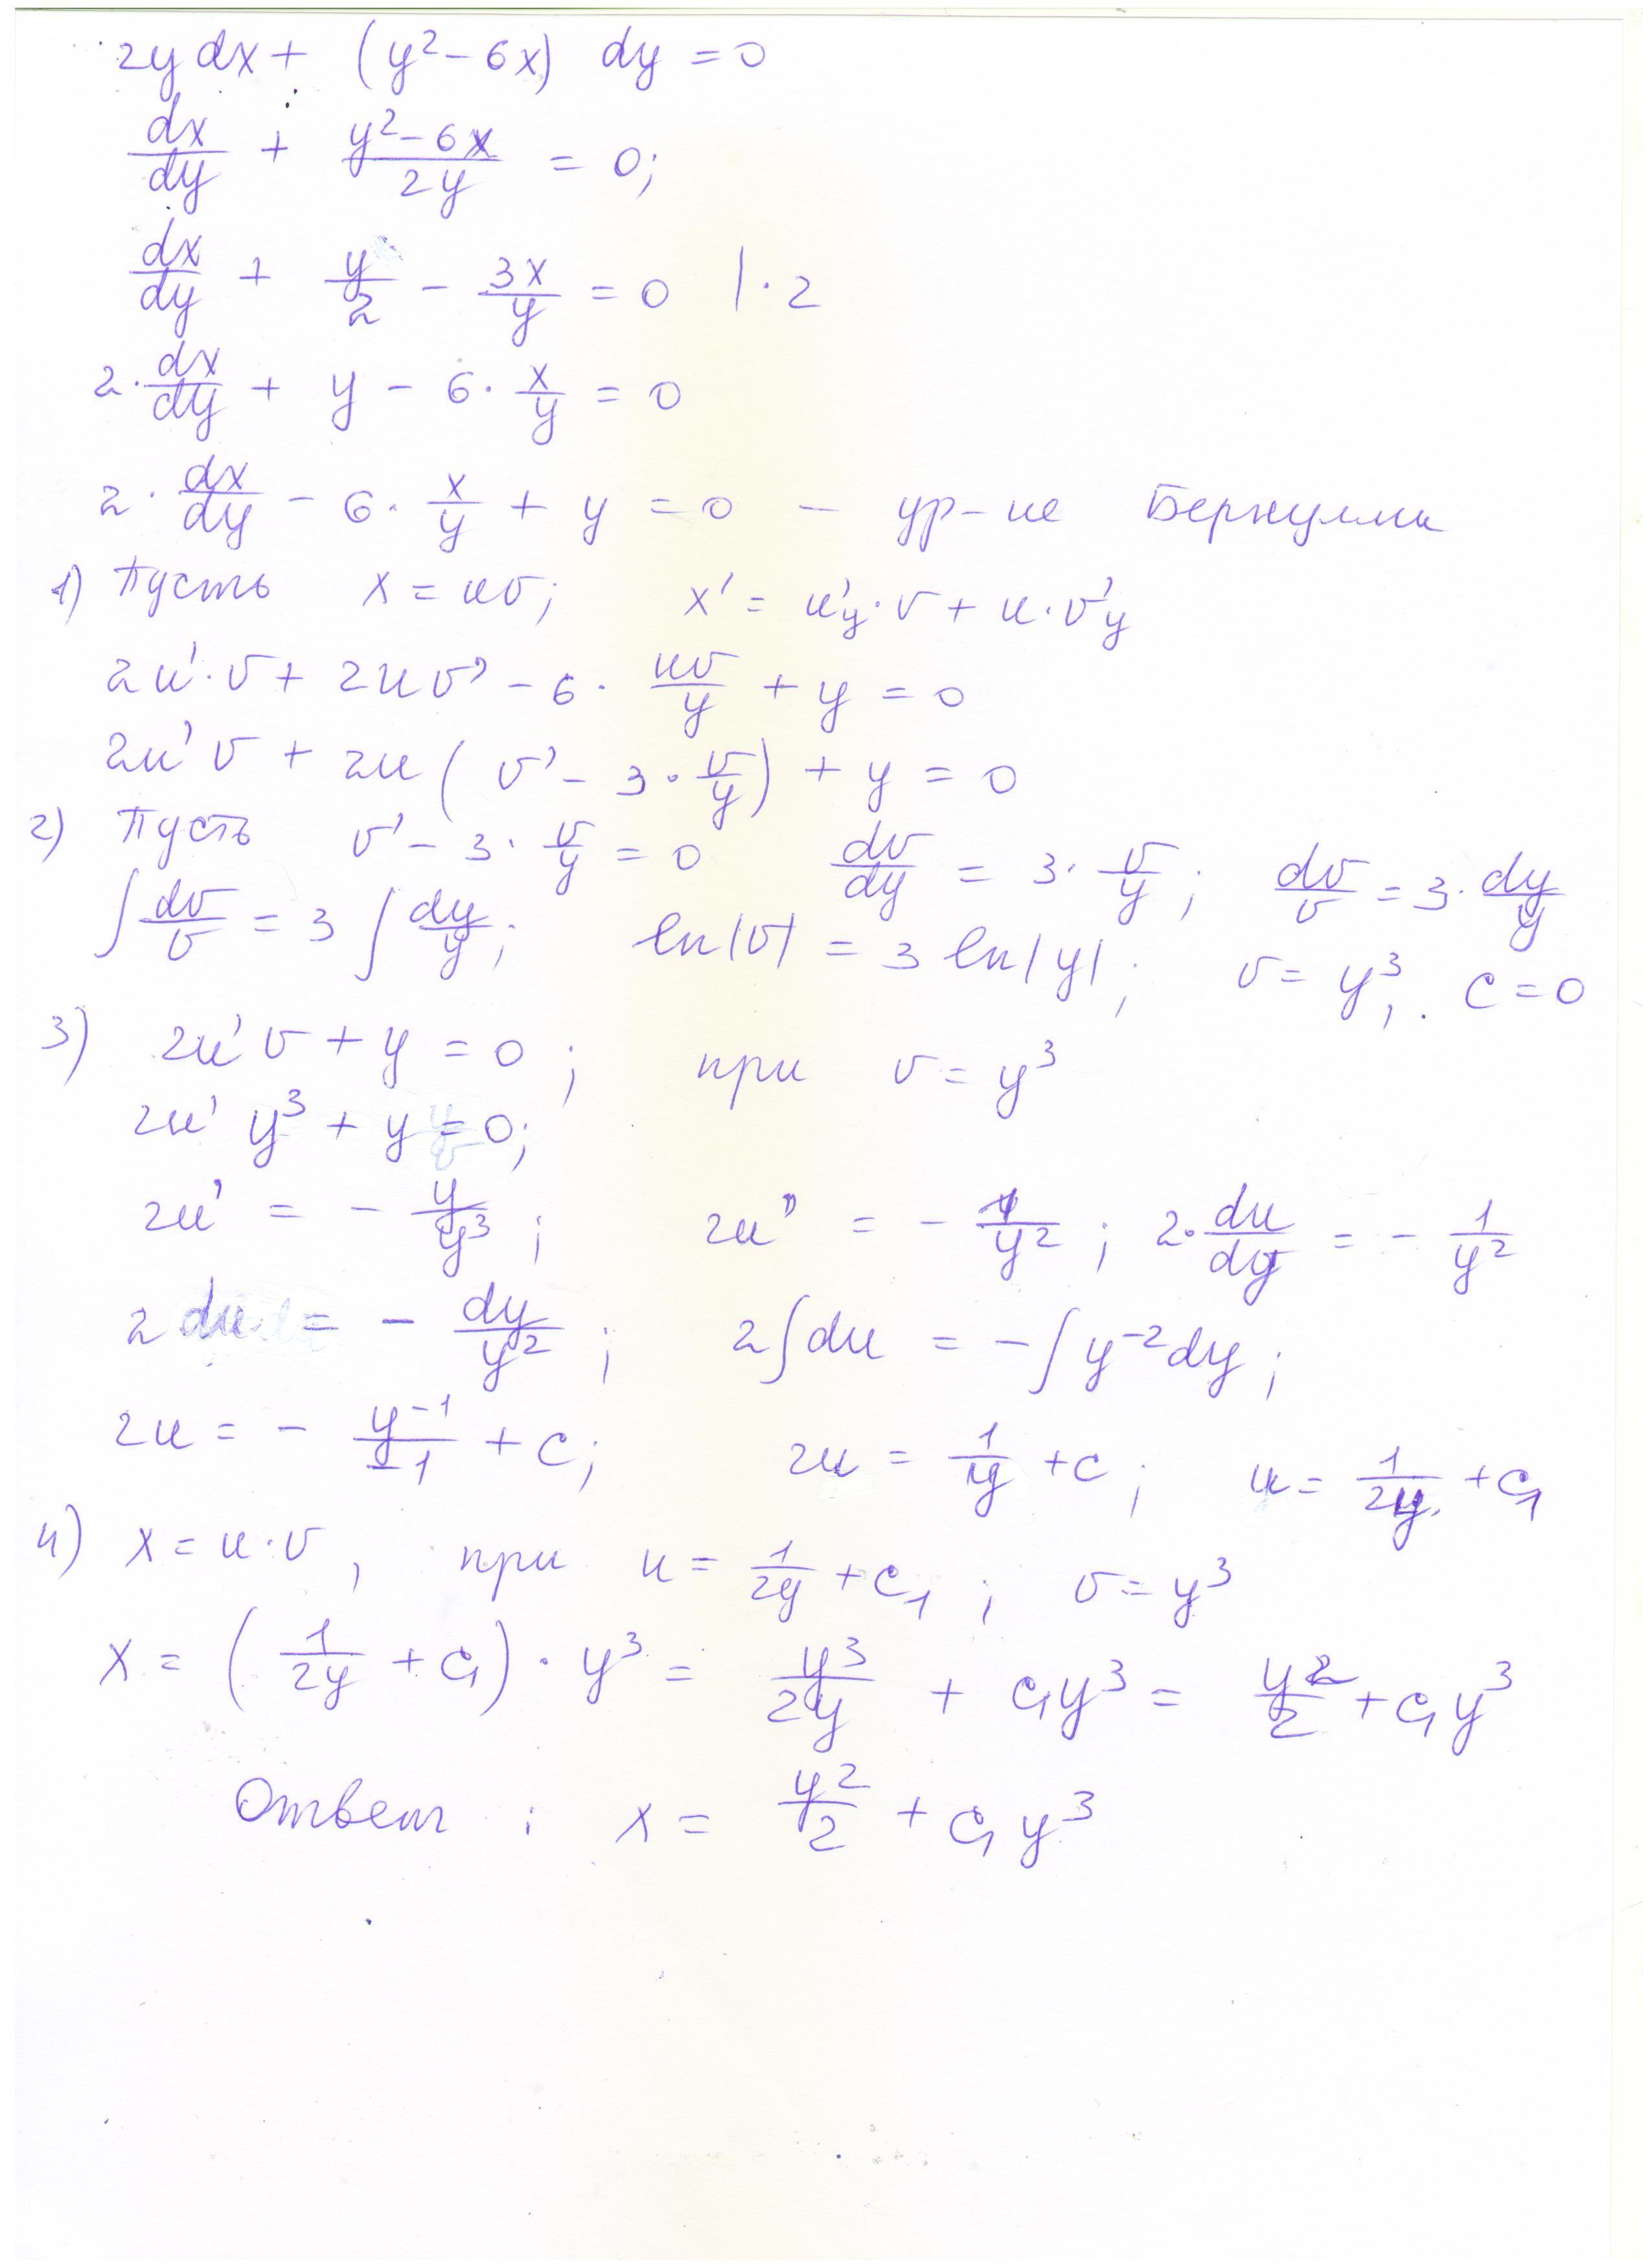 2y dx + (y² - 6x) dy = 0
dx/dy + (y² - 6x)/2y = 0;
dx/dy + y/2 - 3x/y = 0 | · 2
2 · dx/dy + y - 6 · x/y = 0
2 · dx/dy - 6 · x/y + y = 0 — ур-ие Бернулли
1) Пусть x = uv; x' = u'y · v + u · v'y
2u' · v + 2uv' - 6 · uv/y + y = 0
2u'v + 2u (v' - 3 · v/y) + y = 0
2) Пусть v' - 3 · v/y = 0 dv/dy = 3 · v/y; dv/v = 3 · dy/y
∫ dv/v = 3 ∫ dy/y; ln|v| = 3 ln|y|; v = y³, . C = 0
3) 2u'v + y = 0; при v = y³
2u' y³ + y = 0;
2u' = - y/y³; 2u' = - 1/y²; 2 · du/dy = - 1/y²
2 du = - dy/y²; 2∫du = -∫y⁻²dy;
2u = - y⁻¹/-1 + C; 2u = 1/y + C; u = 1/2y + C₁
4) x = u · v, при u = 1/2y + C₁; v = y³
x = (1/2y + C₁) · y³ = y³/2y + C₁y³ = y²/2 + C₁y³
Ответ : x = y²/2 + C₁y³